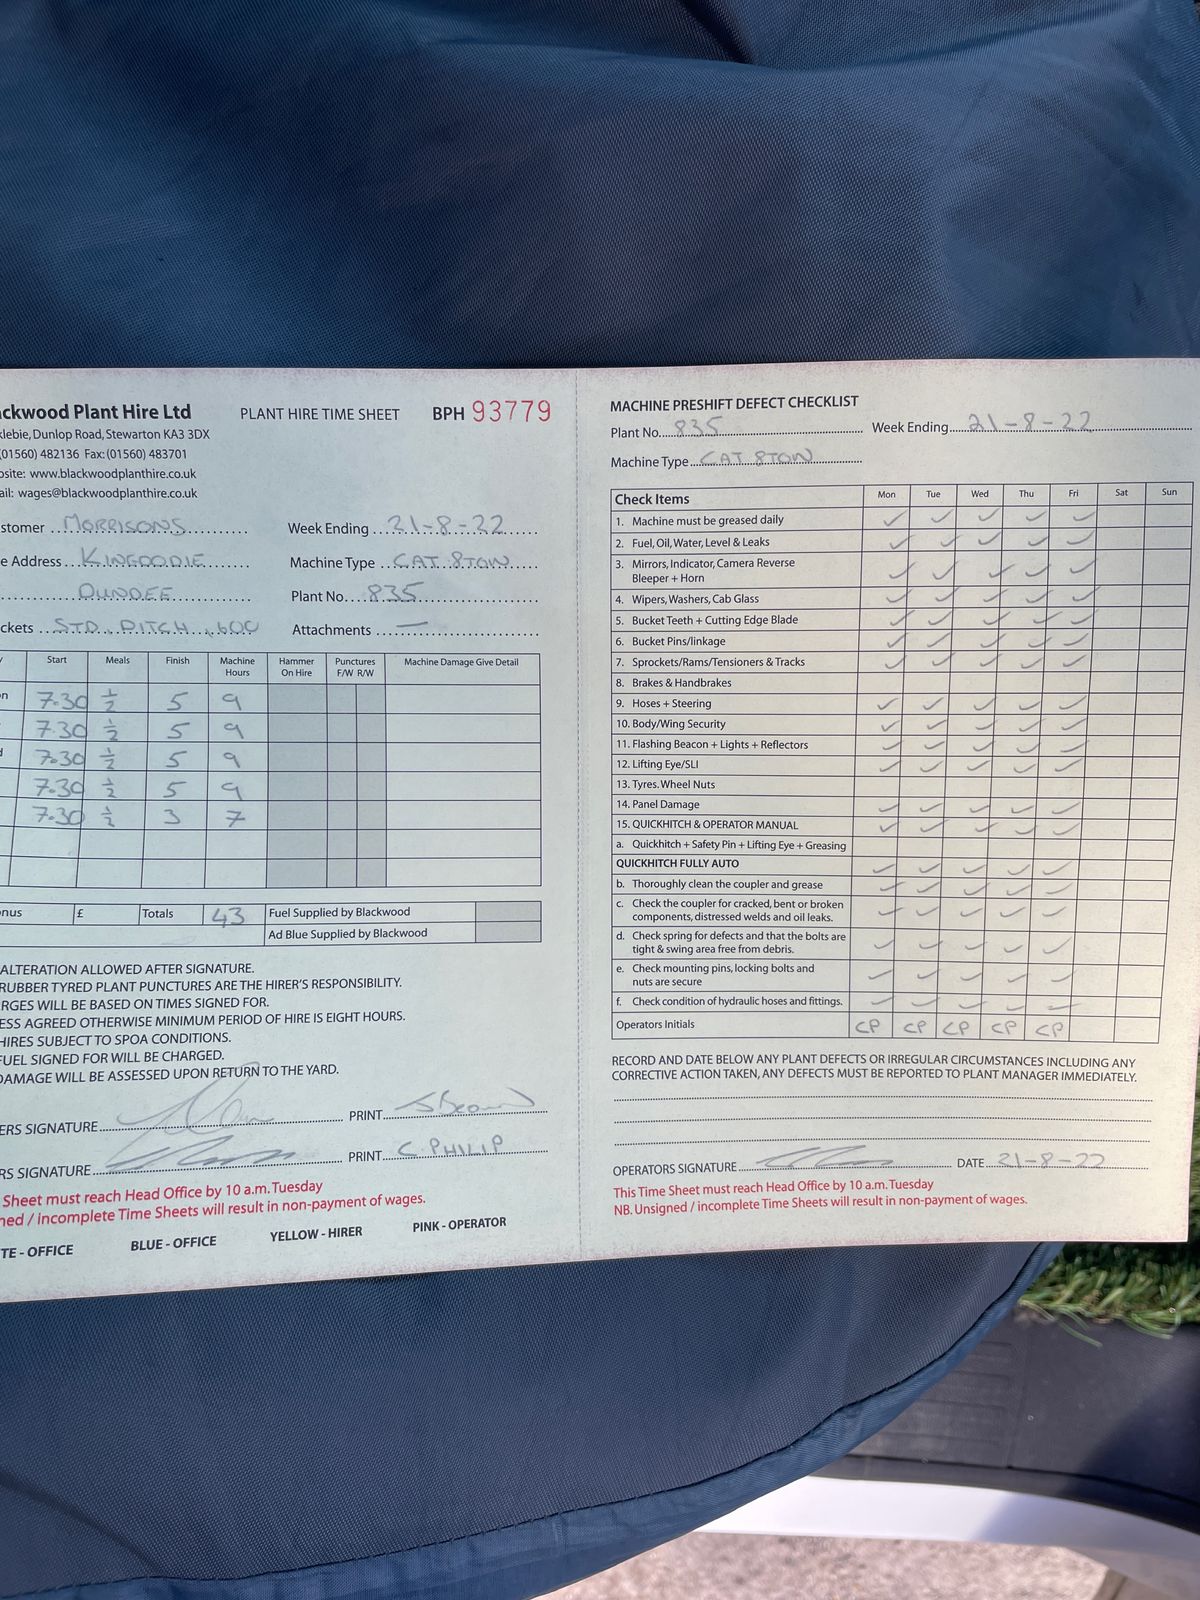 ackwood Plant Hire Ltd
PLANT HIRE TIME SHEET
BPH 93779
klebie, Dunlop Road, Stewarton KA3 3DX
(01560) 482136 Fax: (01560) 483701
site: www.blackwoodplanthire.co.uk
ail: wages@blackwoodplanthire.co.uk
stomer MORRISONS
Week Ending 21-8-22
e Address KINGOODIE
Machine Type CAT 8TON
DUNDEE
Plant No. 835
ckets STD, DITCH, 600
Attachments —
Start Meals Finish Machine Hours Hammer On Hire Punctures F/W R/W Machine Damage Give Detail
n 7.30 ½ 5 9
7.30 ½ 5 9
d 7.30 ½ 5 9
7.30 ½ 5 9
7.30 ½ 3 7
nus £ Totals 43 Fuel Supplied by Blackwood
Ad Blue Supplied by Blackwood
ALTERATION ALLOWED AFTER SIGNATURE.
RUBBER TYRED PLANT PUNCTURES ARE THE HIRER'S RESPONSIBILITY.
RGES WILL BE BASED ON TIMES SIGNED FOR.
ESS AGREED OTHERWISE MINIMUM PERIOD OF HIRE IS EIGHT HOURS.
HIRES SUBJECT TO SPOA CONDITIONS.
FUEL SIGNED FOR WILL BE CHARGED.
DAMAGE WILL BE ASSESSED UPON RETURN TO THE YARD.
ERS SIGNATURE PRINT
RS SIGNATURE PRINT C. PHILIP
Sheet must reach Head Office by 10 a.m. Tuesday
ned / incomplete Time Sheets will result in non-payment of wages.
TE - OFFICE BLUE - OFFICE YELLOW - HIRER PINK - OPERATOR
MACHINE PRESHIFT DEFECT CHECKLIST
Plant No. 835 Week Ending 21-8-22
Machine Type CAT 8TON
Check Items Mon Tue Wed Thu Fri Sat Sun
1. Machine must be greased daily ✓ ✓ ✓ ✓ ✓
2. Fuel, Oil, Water, Level & Leaks ✓ ✓ ✓ ✓ ✓
3. Mirrors, Indicator, Camera Reverse
Bleeper + Horn ✓ ✓ ✓ ✓ ✓
4. Wipers, Washers, Cab Glass ✓ ✓ ✓ ✓ ✓
5. Bucket Teeth + Cutting Edge Blade ✓ ✓ ✓ ✓ ✓
6. Bucket Pins/linkage ✓ ✓ ✓ ✓ ✓
7. Sprockets/Rams/Tensioners & Tracks ✓ ✓ ✓ ✓ ✓
8. Brakes & Handbrakes
9. Hoses + Steering ✓ ✓ ✓ ✓ ✓
10. Body/Wing Security ✓ ✓ ✓ ✓ ✓
11. Flashing Beacon + Lights + Reflectors ✓ ✓ ✓ ✓ ✓
12. Lifting Eye/SLI ✓ ✓ ✓ ✓ ✓
13. Tyres. Wheel Nuts
14. Panel Damage ✓ ✓ ✓ ✓ ✓
15. QUICKHITCH & OPERATOR MANUAL ✓ ✓ ✓ ✓ ✓
a. Quickhitch + Safety Pin + Lifting Eye + Greasing
QUICKHITCH FULLY AUTO ✓ ✓ ✓ ✓ ✓
b. Thoroughly clean the coupler and grease ✓ ✓ ✓ ✓ ✓
c. Check the coupler for cracked, bent or broken
components, distressed welds and oil leaks. ✓ ✓ ✓ ✓ ✓
d. Check spring for defects and that the bolts are
tight & swing area free from debris. ✓ ✓ ✓ ✓ ✓
e. Check mounting pins, locking bolts and
nuts are secure ✓ ✓ ✓ ✓ ✓
f. Check condition of hydraulic hoses and fittings. ✓ ✓ ✓ ✓ ✓
Operators Initials CP CP CP CP CP
RECORD AND DATE BELOW ANY PLANT DEFECTS OR IRREGULAR CIRCUMSTANCES INCLUDING ANY
CORRECTIVE ACTION TAKEN, ANY DEFECTS MUST BE REPORTED TO PLANT MANAGER IMMEDIATELY.
OPERATORS SIGNATURE DATE 21-8-22
This Time Sheet must reach Head Office by 10 a.m. Tuesday
NB. Unsigned / incomplete Time Sheets will result in non-payment of wages.